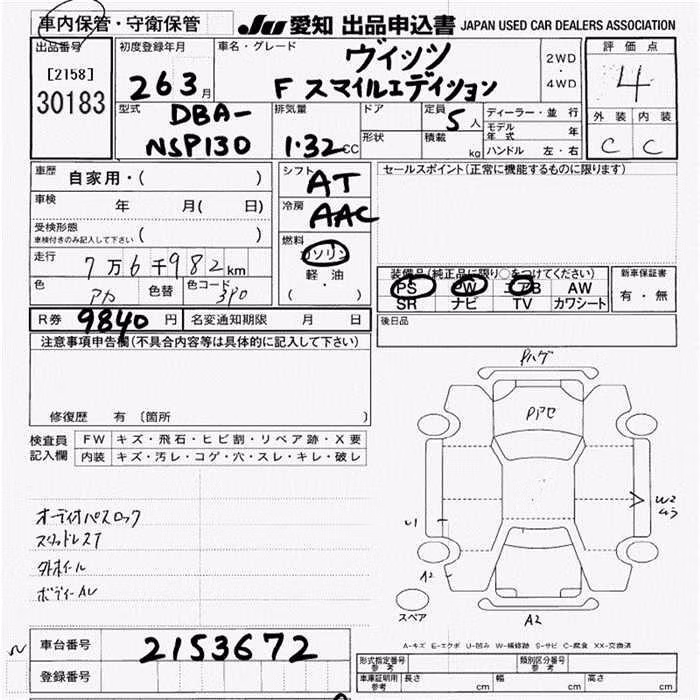 車内保管・守衛保管
JU 愛知 出品申込書 JAPAN USED CAR DEALERS ASSOCIATION
出品番号 初度登録年月 車名・グレード ヴィッツ 2WD・4WD 評価点
[2158] 30183 263月 F スマイルエディション 4
型式 DBA-NSP130 排気量 1.32CC ドア 定員 5人 ディーラー・並行 外装 内装
形状 積載 kg モデル年式 年 C C
ハンドル 左・右
車歴 自家用・( ) シフト AT セールスポイント(正常に機能するものに限ります)
車検 年 月( 日) 冷房 AAC
受検形態
車検付きのみ記入して下さい ( )
燃料 ガソリン
軽油
( ・ )
走行 7万6千982km
色 アカ 色替 色コード 3P0
装備品(純正品に限り○をつけてください) 新車保証書
PS PW エアB AW 有・無
SR ナビ TV カワシート
R券 9840円 名変通知期限 月 日 後日品
注意事項申告欄(不具合内容等は具体的に記入して下さい)
修復歴 有 〔箇所 〕
検査員記入欄 FW キズ・飛石・ヒビ割・リペア跡・X要
内装 キズ・汚レ・コゲ・穴・スレ・キレ・破レ
スタッドレス
外ホイール
PPC
W2
ムラ
U1
A2
スペア
A2
A-キズ E-エクボ U-凹み W-補修跡 S-サビ C-腐食 XX-交換済
車台番号 2153672
登録番号
形式指定番号 参考 類別区分番号 参考
車庫証明用 参考 長さ cm 幅 cm 高さ cm